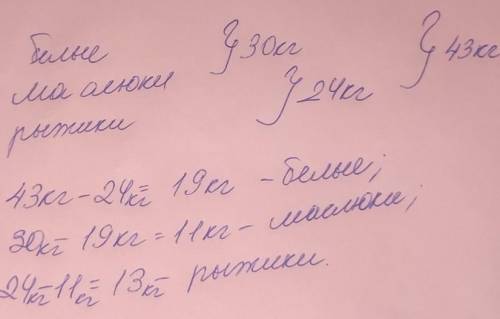 белые } 30кг } 43кг
маслюки } 24кг
рыжики
43кг - 24кг = 19кг - белые;
30кг - 19кг = 11кг - маслюки;
24кг - 11кг = 13кг рыжики.